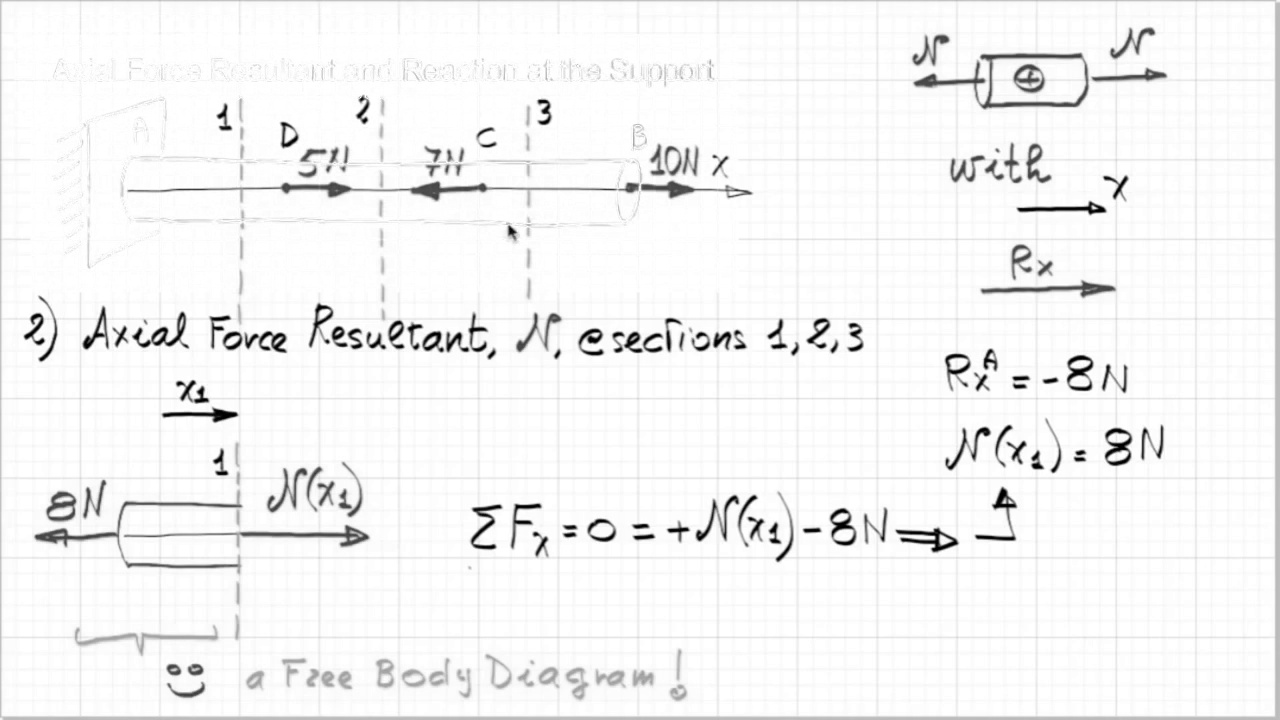 Axial Force Resultant and Reaction at the Support
A 1 D 2 C 3 B
5N 7N 10N x
N N
+
with
x
Rx
2) Axial Force Resultant, N, @sections 1,2,3
x₁
1
8N N(x₁)
ΣFₓ = 0 = +N(x₁) - 8N ⇒
Rxᴬ = -8N
N(x₁) = 8N
a Free Body Diagram!